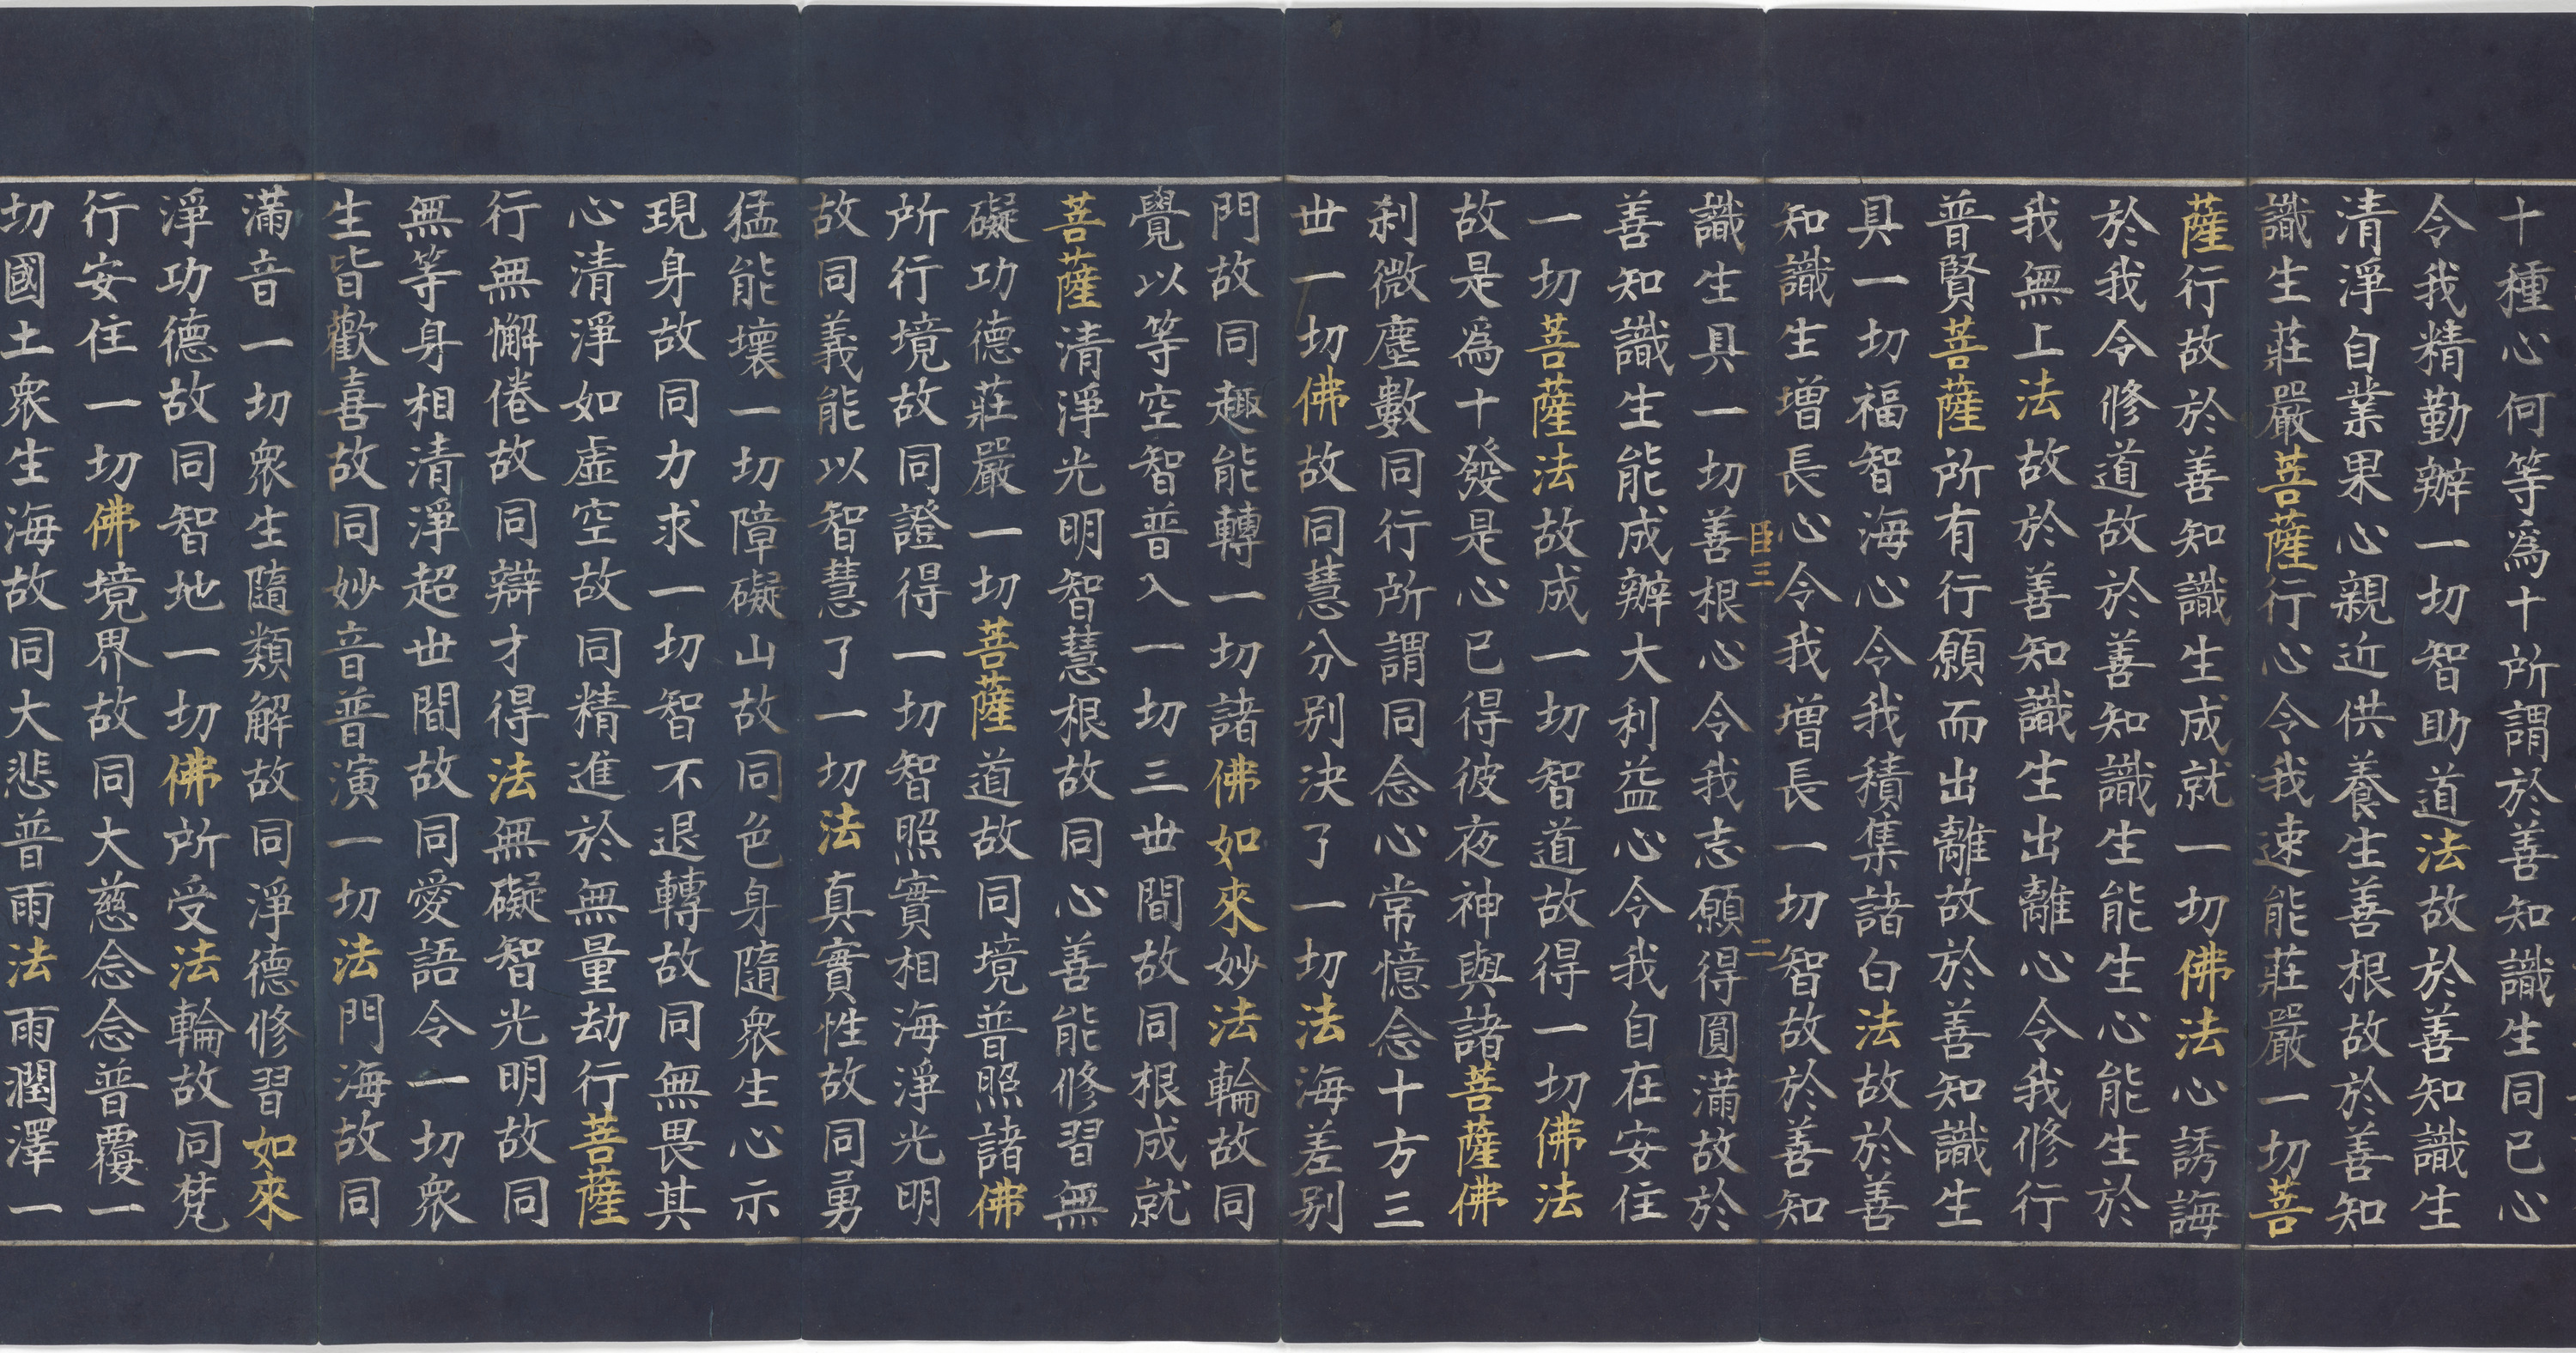 十種心何等爲十所謂於善知識生同己心
令我精勤辦一切智助道法故於善知識生
清淨自業果心親近供養生善根故於善知
識生莊嚴菩薩行心令我速能莊嚴一切菩
薩行故於善知識生成就一切佛法心誘誨
於我令修道故於善知識生能生心能生於
我無上法故於善知識生出離心令我修行
普賢菩薩所有行願而出離故於善知識生
具一切福智海心令我積集諸白法故於善
知識生增長心令我增長一切智故於善知
臣三 二
識生具一切善根心令我志願得圓滿故於
善知識生能成辦大利益心令我自在安住
一切菩薩法故成一切智道故得一切佛法
故是爲十發是心已得彼夜神與諸菩薩佛
刹微塵數同行所謂同念心常憶念十方三
世一切佛故同慧分別決了一切法海差别
門故同趣能轉一切諸佛如來妙法輪故同
覺以等空智普入一切三世間故同根成就
菩薩清淨光明智慧根故同心善能修習無
礙功德莊嚴一切菩薩道故同境普照諸佛
所行境故同證得一切智照實相海淨光明
故同義能以智慧了一切法真實性故同勇
猛能壞一切障礙山故同色身隨衆生心示
現身故同力求一切智不退轉故同無畏其
心清淨如虛空故同精進於無量劫行菩薩
行無懈倦故同辯才得法無礙智光明故同
無等身相清淨超世間故同愛語令一切衆
生皆歡喜故同妙音普演一切法門海故同
滿音一切衆生隨類解故同淨德修習如來
淨功德故同智地一切佛所受法輪故同梵
行安住一切佛境界故同大慈念念普覆一
切國土衆生海故同大悲普雨法雨潤澤一